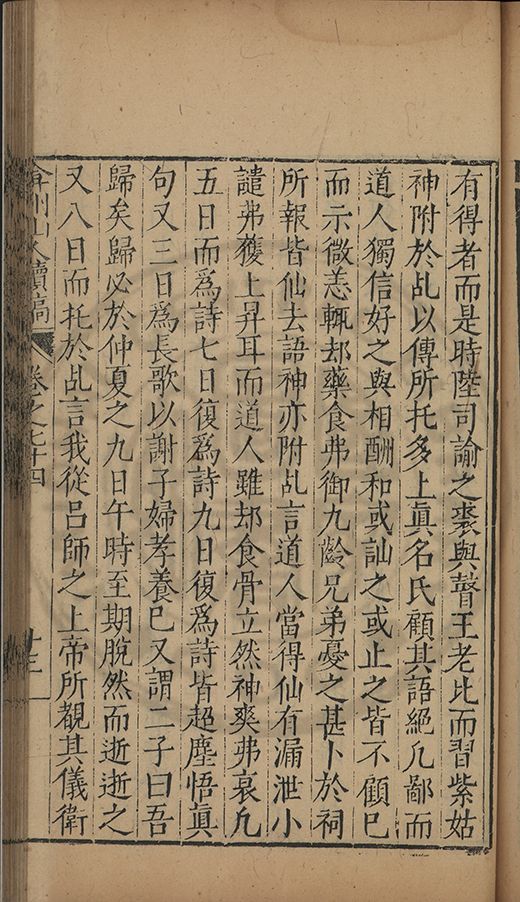 有得者而是時陸司諭之裘與瞽王老比而習紫姑
神附於乩以傳所托多上眞名氏顧其語絕凡鄙而
道人獨信好之與相酬和或訕之或止之皆不顧巳
而示微恙輒却藥食弗御九齡兄弟憂之甚卜於祠
所報皆仙去語神亦附乩言道人當得仙有漏泄小
譴弗穫上昇耳而道人雖却食骨立然神爽弗衰凢
五日而爲詩七日復爲詩九日復爲詩皆超塵悟眞
句又三日爲長歌以謝子婦孝養巳又謂二子曰吾
歸矣歸必於仲夏之九日午時至期脫然而逝逝之
又八日而托於乩言我從呂師之上帝所覩其儀衛
弇州山人續稿
卷之七十四
十三